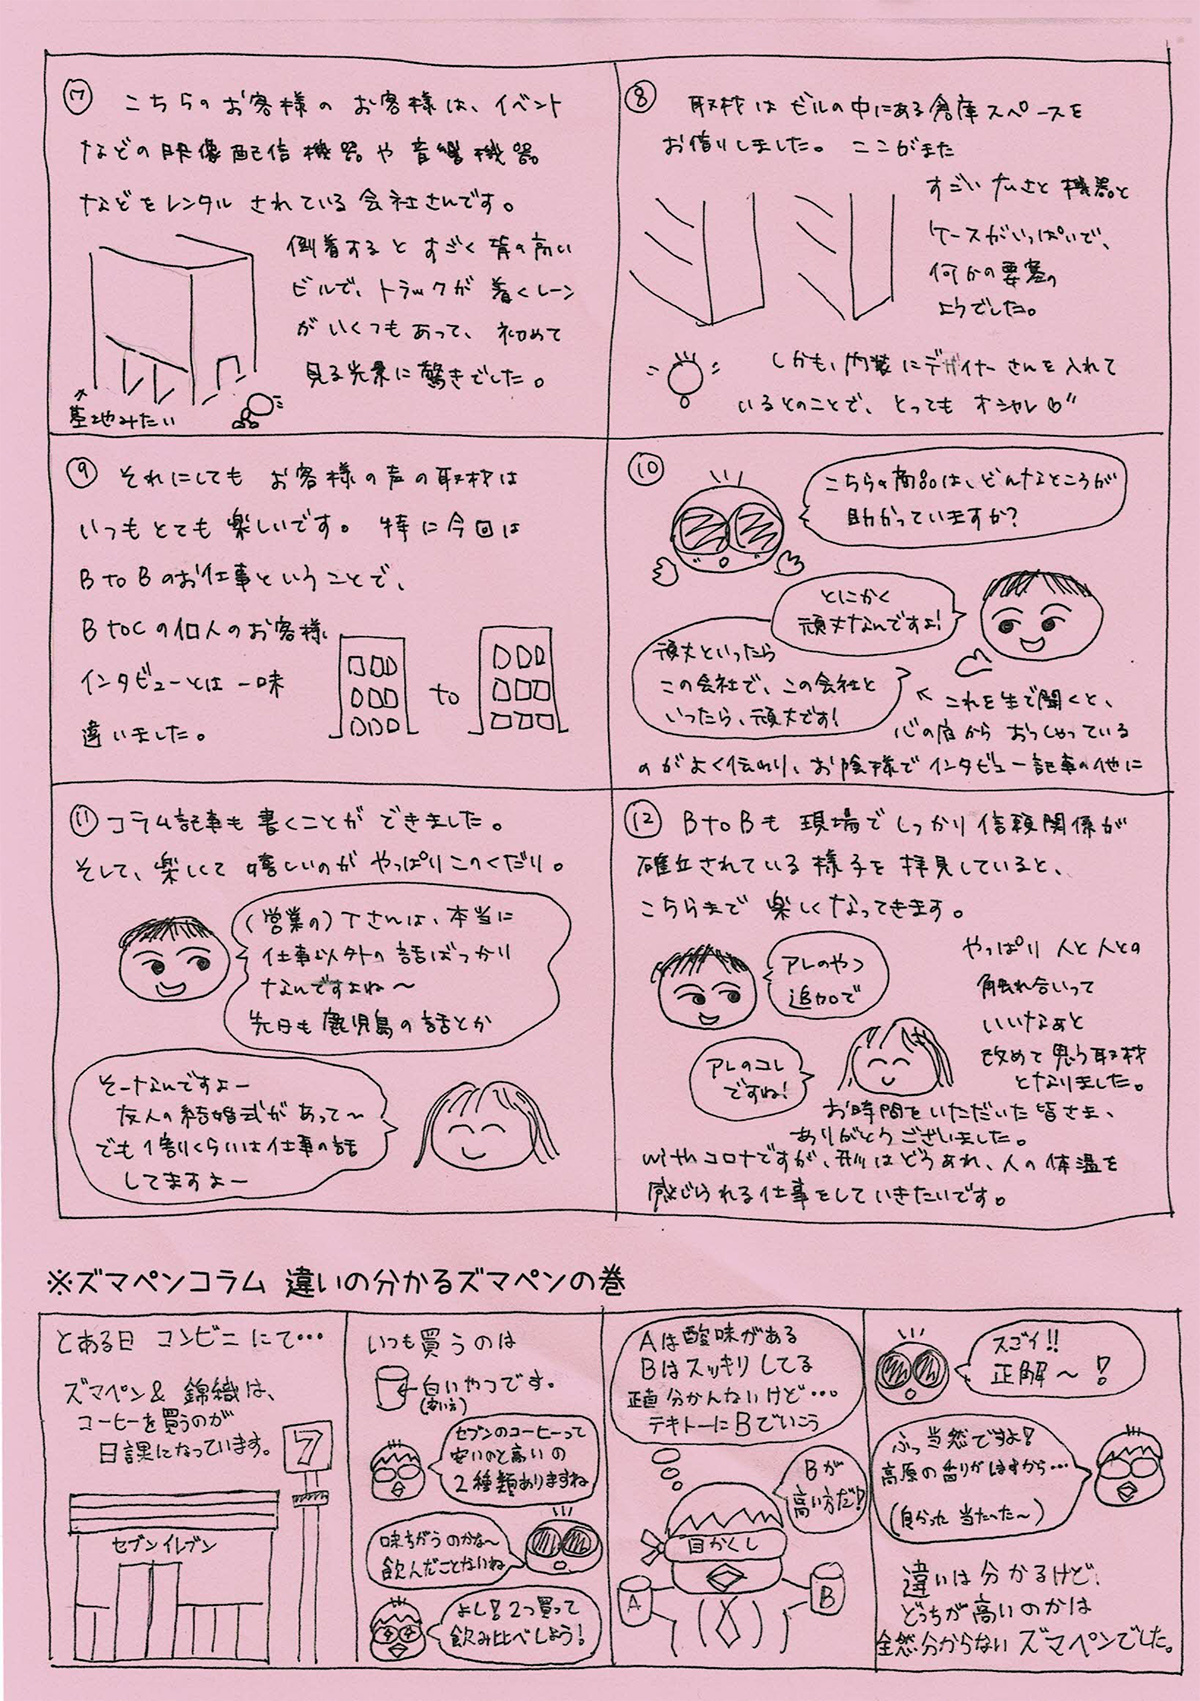 ⑦ こちらのお客様のお客様は、イベント
などの映像配信機器や音響機器
などをレンタルされている会社さんです。
到着するとすごく背の高い
ビルで、トラックが着くレーン
がいくつもあって、初めて
見る光景に驚きでした。
基地みたい
⑧ 取材はビルの中にある倉庫スペースを
お借りしました。ここがまた
すごい大きさと機器と
ケースがいっぱいで、
何かの要塞の
ようでした。
しかも、内装にデザイナーさんを入れて
いるとのことで、とってもオシャレ♡"
⑨ それにしてもお客様の声の取材は
いつもとても楽しいです。特に今回は
B to Bのお仕事ということで、
B toCの個人のお客様
インタビューとは一味
違いました。
to
⑩
こちらの商品は、どんなところが
助かっていますか?
とにかく
頑丈なんですよ!
頑丈といったら
この会社で、この会社と
いったら、頑丈です!
← これを生で聞くと、
心の底からおっしゃっている
のがよく伝わり、お陰様でインタビュー記事の他に
⑪ コラム記事も書くことができました。
そして、楽しくて嬉しいのがやっぱりこのくだり。
(営業の)Tさんは、本当に
仕事以外の話ばっかり
なんですよね〜
先日も鹿児島の話とか
そーなんですよー
友人の結婚式があって〜
でも1割くらいは仕事の話
してますよー
⑫ BtoBも現場でしっかり信頼関係が
確立されている様子を拝見していると、
こちらまで楽しくなってきます。
アレのやつ
追加で
アレのコレ
ですね!
やっぱり人と人との
触れ合いって
いいなぁと
改めて思う取材
となりました。
お時間をいただいた皆さま、
ありがとうございました。
withコロナですが、形はどうあれ、人の体温を
感じられる仕事をしていきたいです。
※ズマペンコラム 違いの分かるズマペンの巻
とある日 コンビニにて…
ズマペン& 錦織は、
コーヒーを買うのが
日課になっています。
7
セブンイレブン
いつも買うのは
白いやつです。
(安い方)
セブンのコーヒーって
安いのと高いの
2種類ありますね
味ちがうのかな〜
飲んだことないね
よし!2つ買って
飲み比べしよう!
Aは酸味がある
Bはスッキリしてる
正直分かんないけど…
テキトーにBでいこう
Bが
高い方だ!
目かくし
A
B
スゴイ!!
正解〜!
ふっ当然ですよ!
高原の香りがほすから…
(良かった 当たった〜)
違いは分かるけど、
どっちが高いのかは
全然分からないズマペンでした。